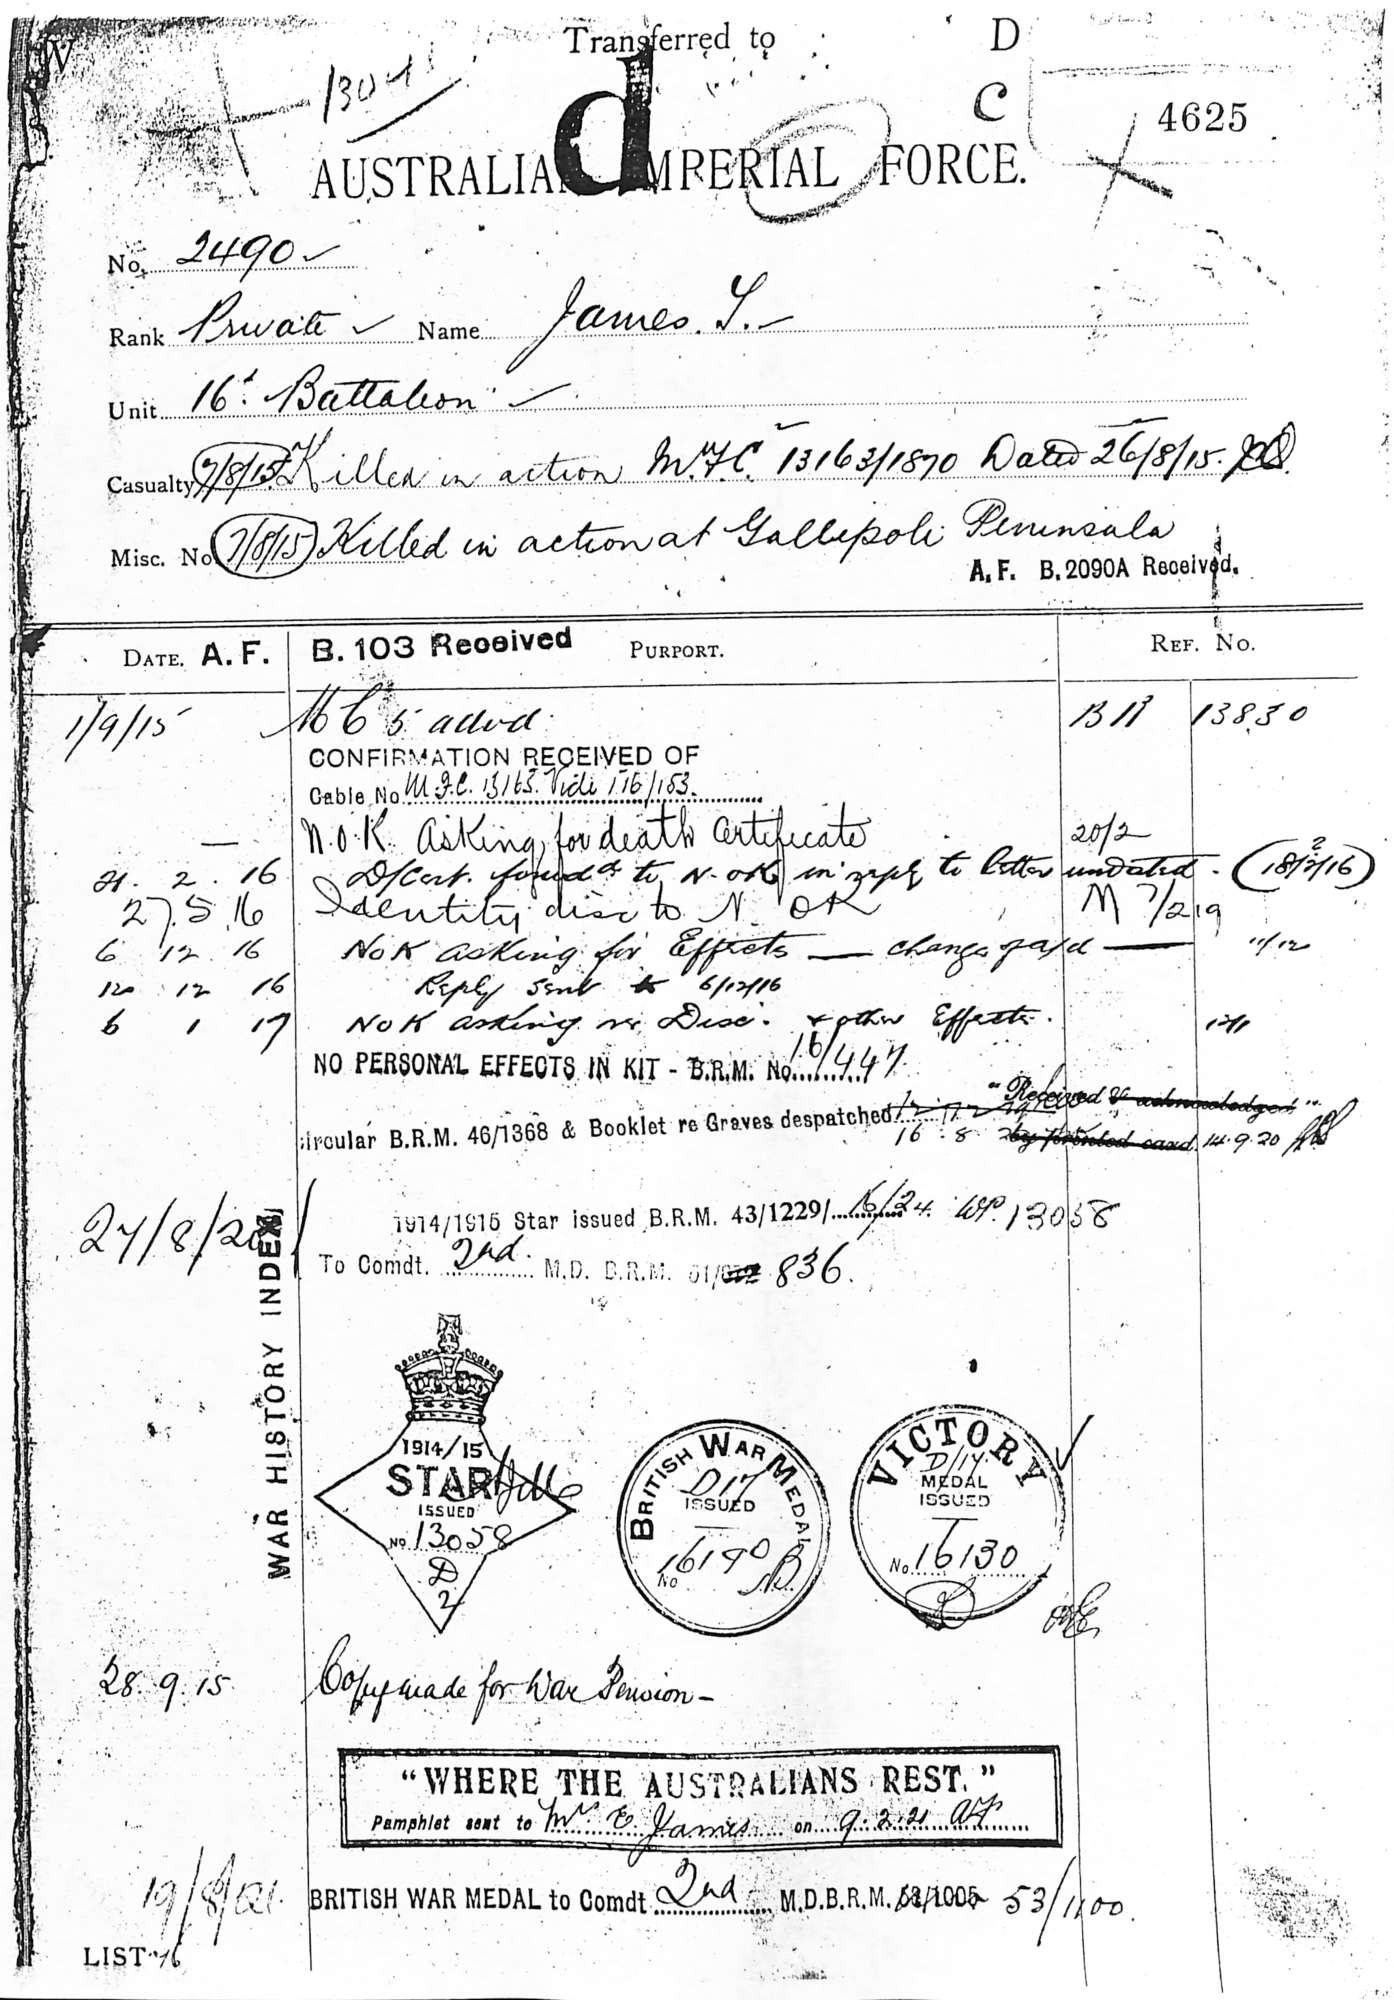 Transferred to
D
C
d
4625
AUSTRALIAN IMPERIAL FORCE.
No. 2490
Rank Private Name James. T.
Unit 16th Battalion
Casualty 7/8/15 Killed in action M.F.C. 13163/1870 Dated 26/8/15.
Misc. No 7/8/15 Killed in action at Gallipoli Peninsula
A.F. B.2090A Received.
DATE. A.F. B.103 Received PURPORT. REF. No.
1/9/15 M C 5 advd. 13830
CONFIRMATION RECEIVED OF
Cable No M.F.C. 13163. Vide 116/153.
— N.O.K. Asking for death Certificate 20/2
21. 2. 16 D/Cert. forwd to N.O.K. in reply to letter undated. (18/2/16)
27.5.16 Identity disc to N.OK M 7/219
6 12 16 NoK asking for Effects — change of a/d — 11/12
12 12 16 Reply sent to 6/12/16
6 1 17 NoK asking re Disc. & other Effects.
NO PERSONAL EFFECTS IN KIT - B.R.M. No. 16/447
"Received & acknowledged"
Circular B.R.M. 46/1368 & Booklet re Graves despatched
16 . 8 by printed card. 14.9.20
27/8/20 1914/1915 Star issued B.R.M. 43/1229/ 16/24. 13058
To Comdt. 2nd. M.D. B.R.M. 836.
WAR HISTORY INDEX
1914/15
STAR
ISSUED
No 13058
D
2
BRITISH WAR MEDAL
D17
ISSUED
No 16190
VICTORY
D/17
MEDAL
ISSUED
No 16130
28.9.15 Copy made for War Pension -
"WHERE THE AUSTRALIANS REST."
Pamphlet sent to Mrs E. James on 9.2.21
19/8/21. BRITISH WAR MEDAL to Comdt 2nd M.D.B.R.M. 53/1005 53/1100.
LIST 16